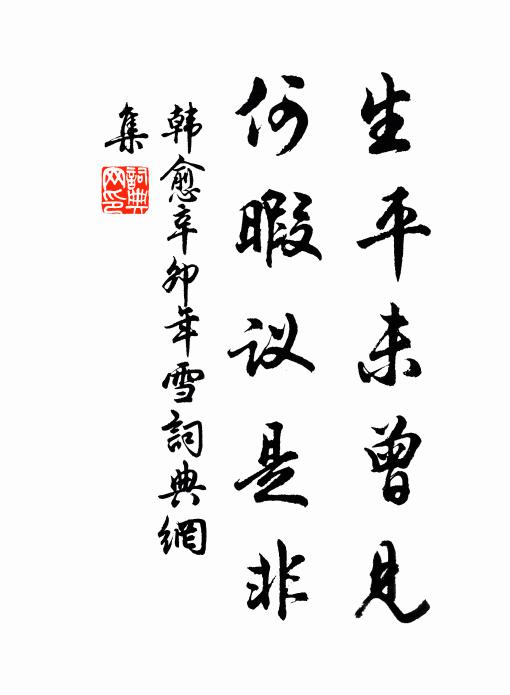 生平未曾见
何暇议是非
韩愈辛卯年雪詞典網
集
詞典
网印